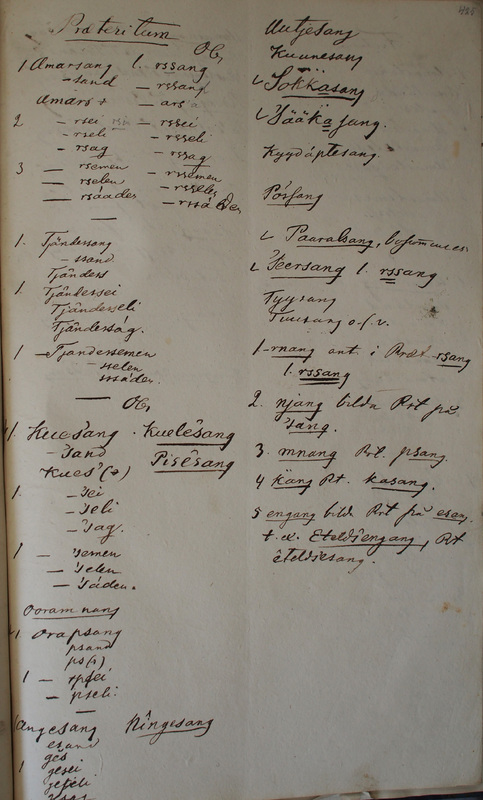 Præteritum
Ob,
1 Amarsang l. rssang
- sand - rssang
Amars +
2 - rsei - rssei
- rseli - rsseli
- rsag - rssag
3 - rsemen - rssemen
- rselen - rsselen
- rsáaden
1. Tjändersang
- ssand
Tjänders
1. Tjänderssei
Tjänderseli
Tjänderság.
1 - Tjanderssemen
- sselen
- ssáden.
Ob,
1. Kuesang . Kuelesang
- sand Pisêsang
Kues
1. - sei
- seli
- sag.
1 - semen
- selen
- sáden.
Ooramnang
1 Orapsang
psand
1 - rpsei
- pseli
angesang Ningesang
esand
ges
1 gesei
geseli
Kuunesang
L Sokkasang
L Jääkasang.
Kyydáptesang
Pórsang
L Paaralsang,
L Seersang l. rssang
Tyysang
Tuusang o.s.v.
1 - rnang ant. i Præt -rsang
l. rssang
2. njang bilda Prt på
sang.
3. mnang Prt. psang.
4 kang Prt. kasang.
5 engang bild. Prt på esang,
t. ex. Eteldsengang, Prt
eteldsesang.